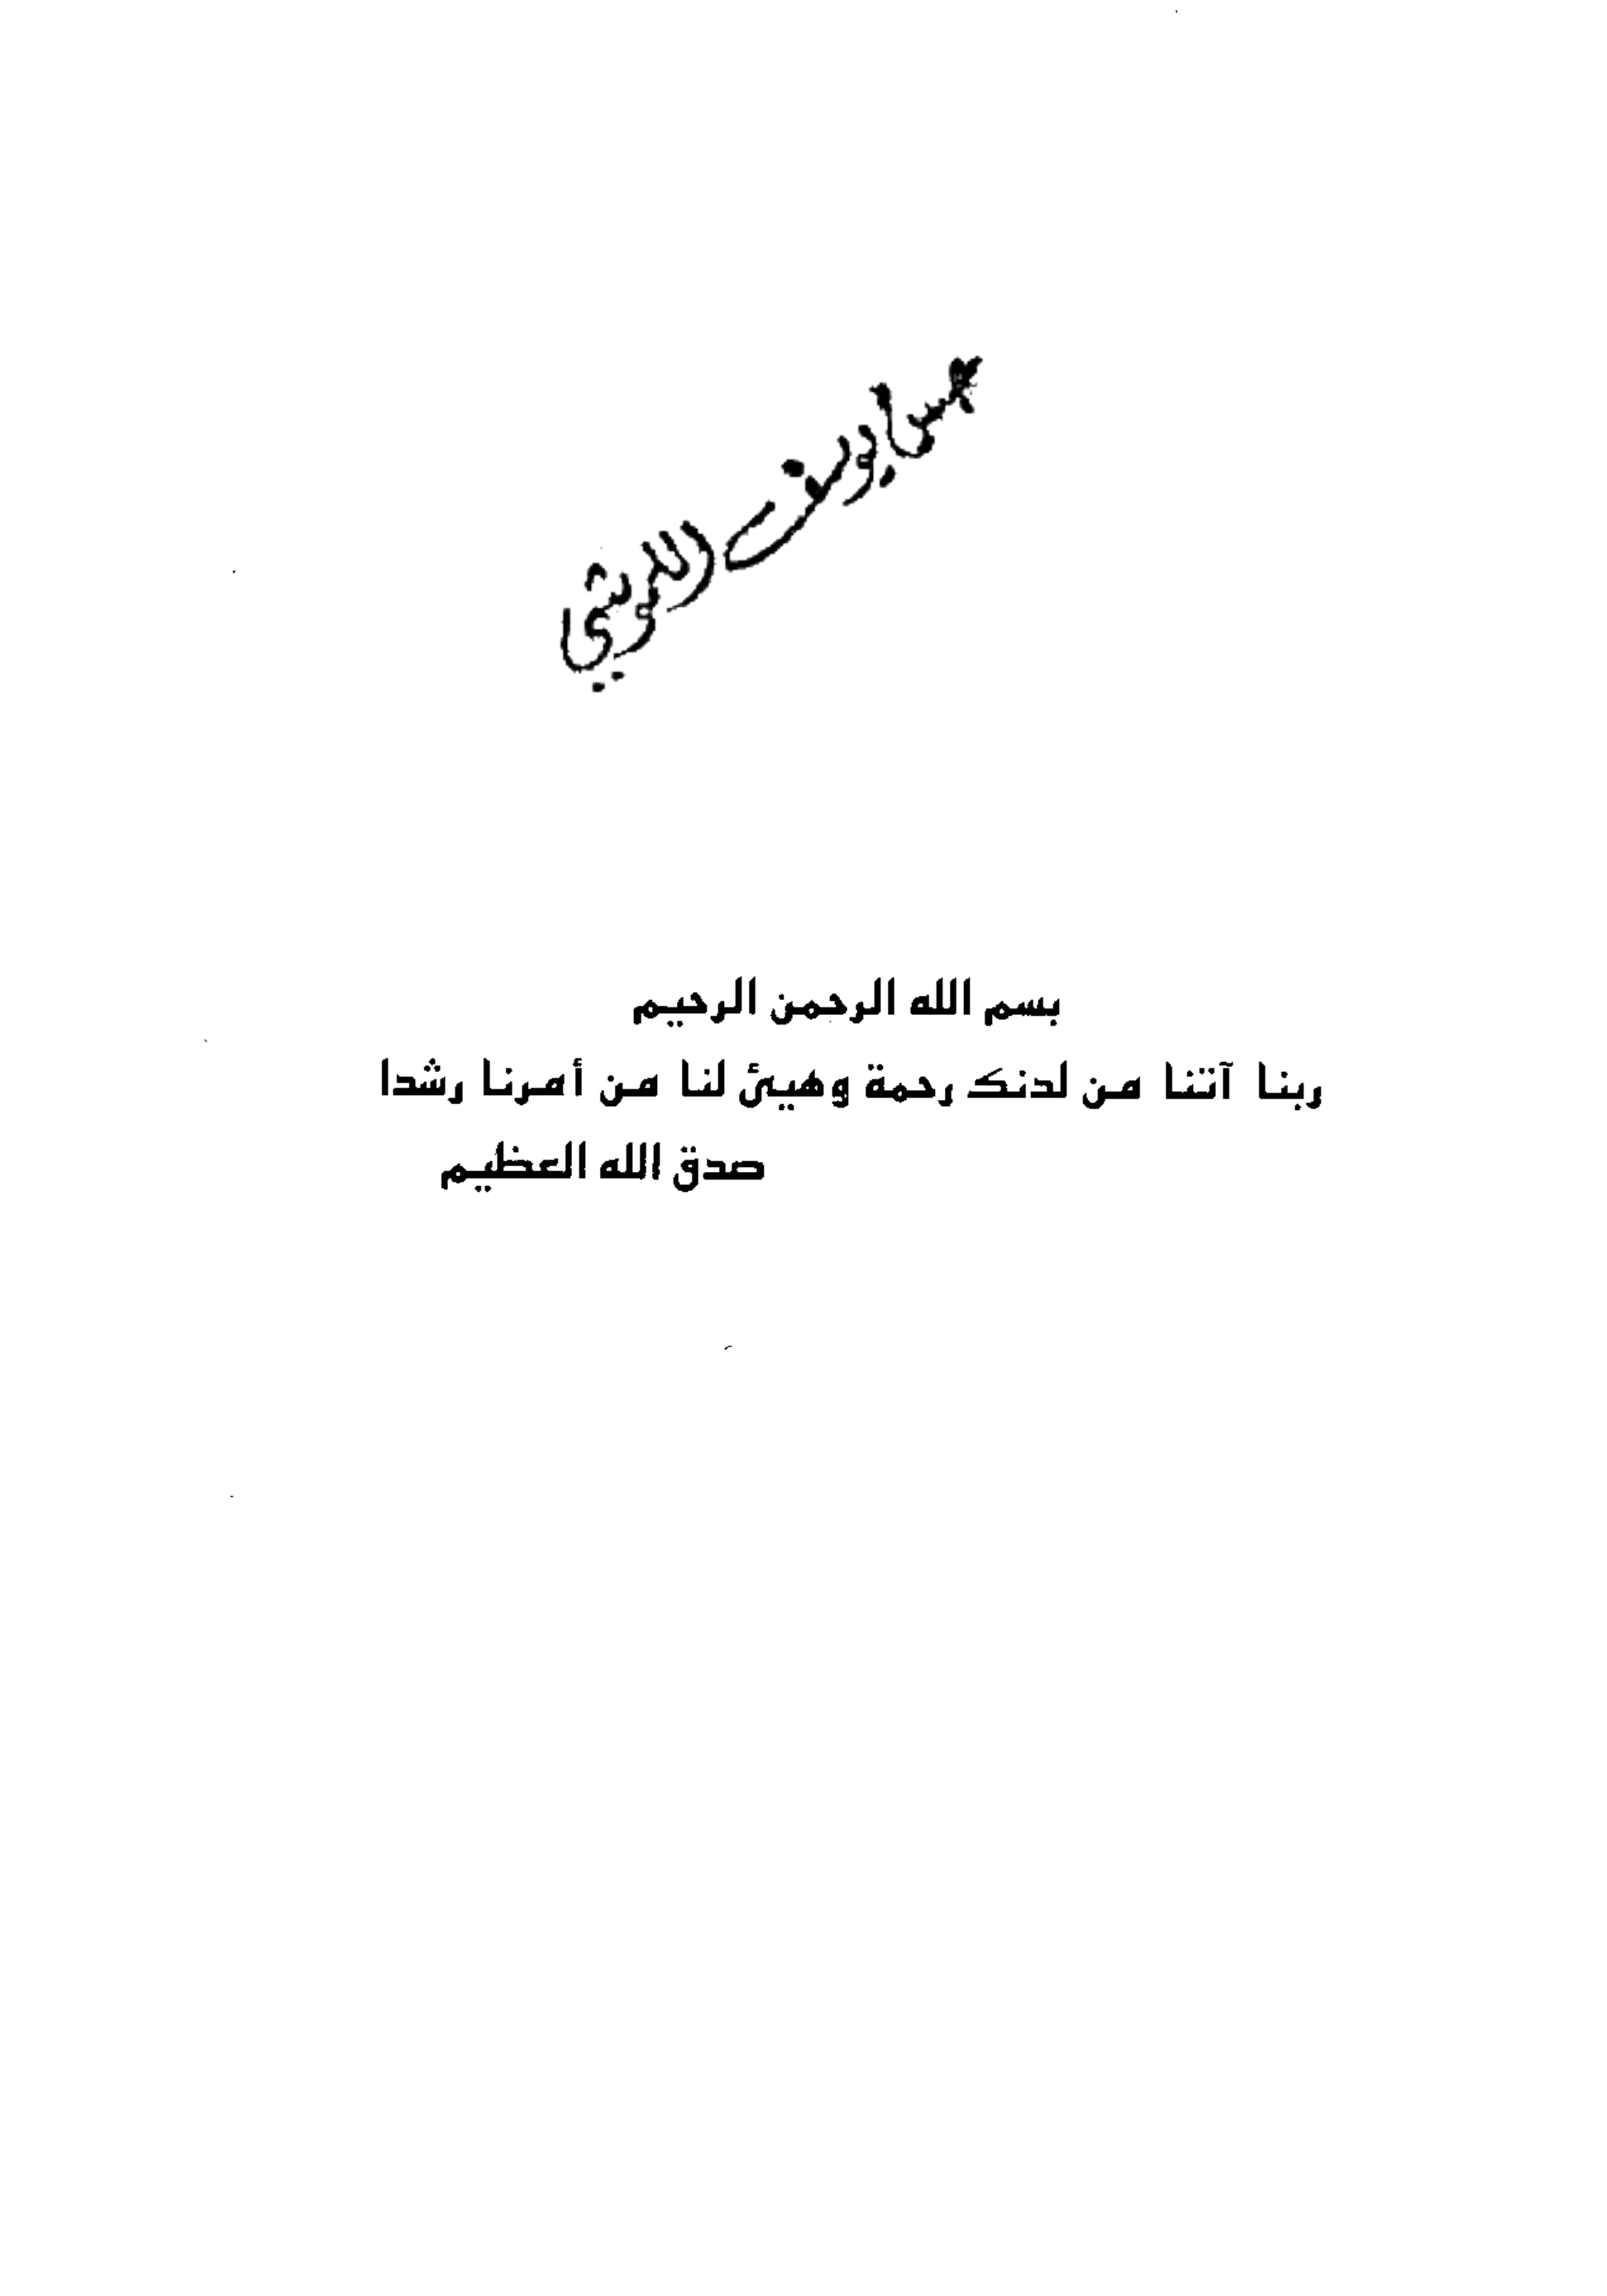 يوسف
بسم الله الرحمن الرحيم
ربنا آتنا من لدنك رحمة وهيئ لنا من أمرنا رشدا
صدق الله العظيم